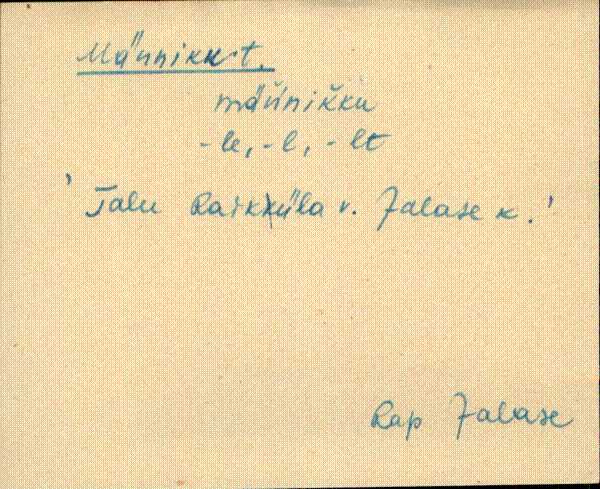 Männikk t.
mäńnikku
-le, -l, -lt
'Talu Raikküla v. Jalase k.'
Rap Jalase